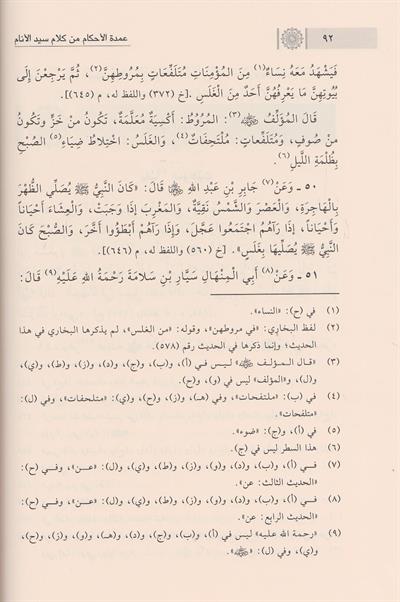 ٩٢
عمدة الأحكام من كلام سيد الأنام
فَيَشْهَدُ مَعَهُ نِسَاءٌ(١) مِنَ المُؤْمِنَاتِ مُتَلَفِّعَاتٍ بِمُرُوطِهِنَّ(٢)، ثُمَّ يَرْجِعْنَ إِلَى
بُيُوتِهِنَّ مَا يَعْرِفُهُنَّ أَحَدٌ مِنَ الغَلَسِ». [خ (٣٧٢) واللفظ له، م (٦٤٥)].
قَالَ المُؤَلِّفُ ﷺ(٣): المُرُوطُ: أَكْسِيَةٌ مُعَلَّمَةٌ، تَكُونُ مِنْ خَزٍّ وَتَكُونُ
مِنْ صُوفٍ، وَمُتَلَفِّعَاتٍ: مُلْتَحِفَاتٍ(٤)، وَالغَلَسُ: اخْتِلَاطُ ضِيَاءِ(٥) الصُّبْحِ
بِظُلْمَةِ اللَّيلِ(٦).
٥٠ ـ وَعَنْ(٧) جَابِرِ بْنِ عَبْدِ اللهِ قَالَ: «كَانَ النَّبِيُّ ﷺ يُصَلِّي الظُّهْرَ
بِالْهَاجِرَةِ، وَالعَصْرَ وَالشَّمْسُ نَقِيَّةٌ، وَالمَغْرِبَ إِذَا وَجَبَتْ، وَالعِشَاءَ أَحْيَاناً
وَأَحْيَاناً، إِذَا رَآهُمُ اجْتَمَعُوا عَجَّلَ، وَإِذَا رَآهُمْ أَبْطَؤُوا أَخَّرَ، وَالصُّبْحَ كَانَ
النَّبِيُّ ﷺ يُصَلِّيهَا بِغَلَسٍ». [خ (٥٦٠) واللفظ له، م (٦٤٦)].
٥١ ـ وَعَنْ(٨) أَبِي المِنْهَالِ سَيَّارِ بْنِ سَلَامَةَ رَحْمَةُ اللهِ عَلَيْهِ(٩) قَالَ:
(١) في (ح): «النساء».
(٢) لفظ البخاري: «في مروطهن»، وقوله: «من الغلس» لم يذكرها البخاري في هذا
الحديث؛ وإنما ذكرها في الحديث رقم (٥٧٨).
(٣) «قال المؤلف» ليس في (أ)، و(ب)، و(ج)، و(د)، و(ز)، و(ط)، و(ي)،
و(ل)، و«المؤلف» ليس في (و)، و(ح).
(٤) في (ب): «ملتفحات»، وفي (هـ)، و(ز)، و(ح)، و(ي): «متلحفات»، وفي (ل):
«متلفحات».
(٥) في (أ)، و(ج): «ضوء».
(٦) هذا السطر ليس في (ج).
(٧) في (أ)، و(ب)، و(د)، و(و)، و(ز)، و(ط)، و(ي)، و(ل): «عن»، وفي (ح):
«الحديث الثالث: عن».
(٨) في (أ)، و(ب)، و(د)، و(و)، و(ز)، و(ط)، و(ي)، و(ل): «عن»، وفي (ح):
«الحديث الرابع: عن».
(٩) «رحمة الله عليه» ليس في (أ)، و(ب)، و(ج)، و(د)، و(هـ)، و(و)، و(ز)، و(ح)،
و(ي)، وفي (ل):